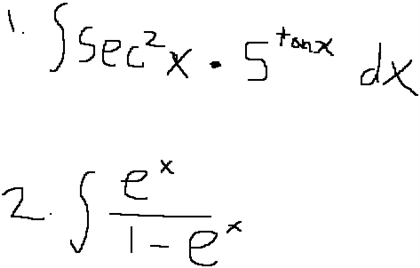 1. ∫ sec²x · 5^{tanx} dx
2. ∫ \frac{e^x}{1 - e^x}